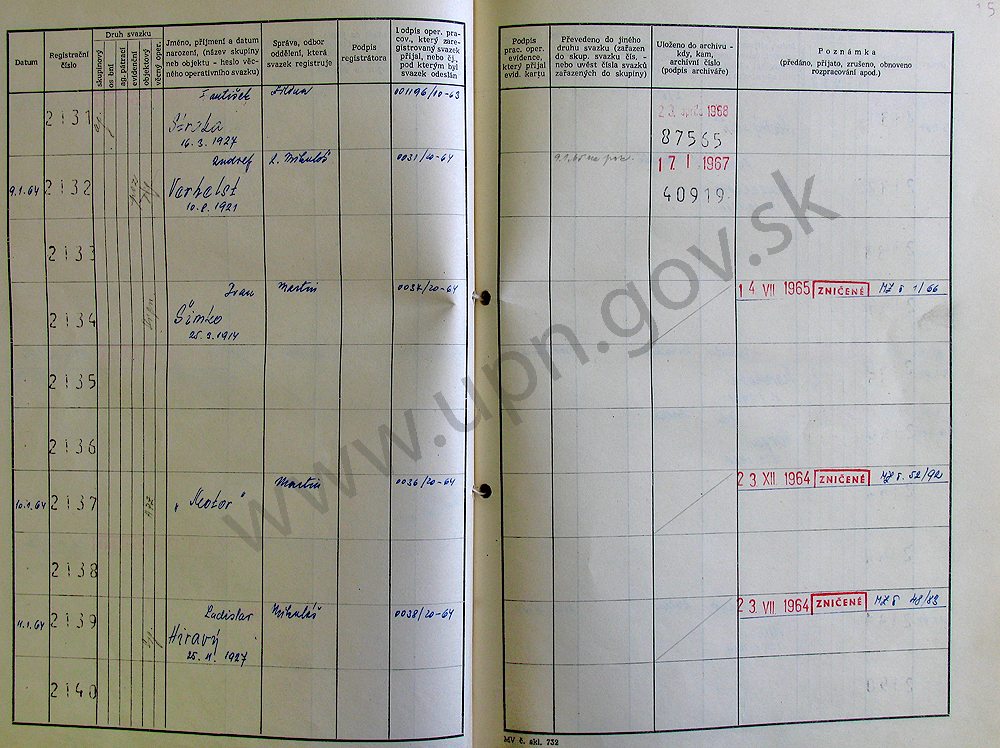 15
Datum
Registrační
číslo
Druh svazku
skupinový
os bní
ag. pátrací
evidenční
objektový
věcný oper.
Jméno, příjmení a datum
narození, (název skupiny
neb objektu - heslo věc-
ného operativního svazku)
Správa, odbor
oddělení, která
svazek registruje
Podpis
registrátora
Podpis oper. pra-
cov., který zare-
gistrovaný svazek
přijal, nebo čj.
pod kterým byl
svazek odeslán
Podpis
prac. oper.
evidence,
který přijal
evid. kartu
Převedeno do jiného
druhu svazku (zařazen
do skup. svazku čís, -
nebo uvést čísla svazků
zařazených do skupiny)
Uloženo do archivu -
kdy, kam,
archivní číslo
(podpis archiváře)
Poznámka
(předáno, přijato, zrušeno, obnoveno
rozpracování apod.)
2131
František
Široka
16. 3. 1927
Žilina
001196/10-63
23. dub. 1968
87565
9.1.64 2132
Andrej
Verbolet
10.8. 1921
L. Mikuláš
0031/20-64
17. I 1967
40919
2133
2134
Ivan
Šimko
25. 3. 1914
Martin
0034/20-64
14 VII 1965 ZNIČENÉ MZ č 1/66
2135
2136
10.1.64 2137
„Meotor"
Martin
0036/20-64
23. XII 1964 ZNIČENÉ MZ č. 52/92
2138
11.1.64 2139
Ladislav
Hiravý
25. 11. 1927
Mikuláš
0038/20-64
23. VII 1964 ZNIČENÉ MZ č 48/83
2140
MV č. skl. 732
www.upn.gov.sk